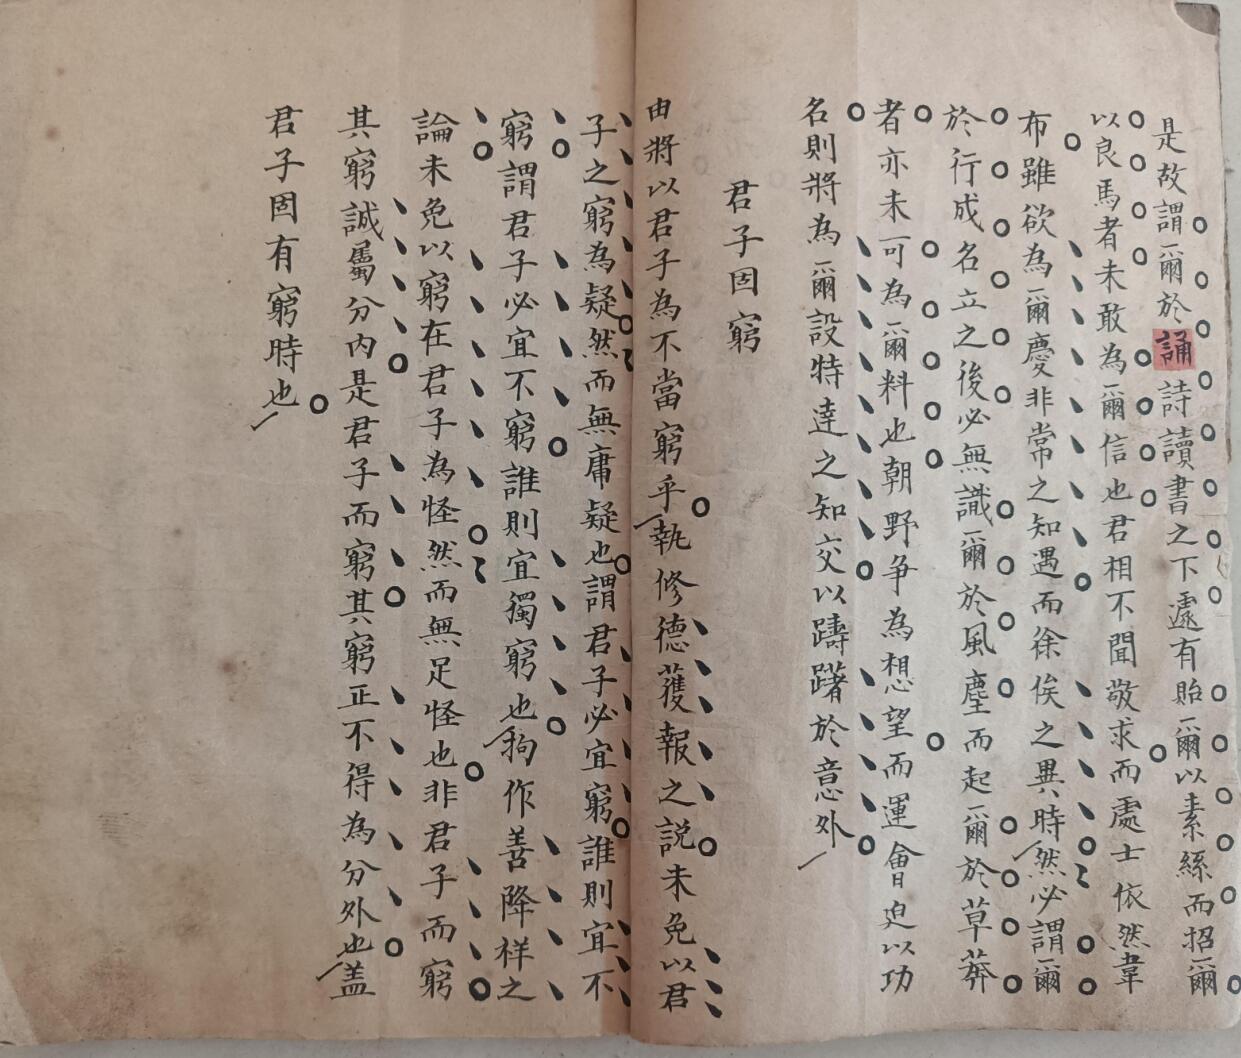 是故謂爾於誦詩讀書之下遽有貽爾以素絲而招爾
以良馬者未敢為爾信也君相不聞敬求而處士依然韋
布雖欲為爾慶非常之知遇而徐俟之異時然必謂爾
於行成名立之後必無識爾於風塵而起爾於草莽
者亦未可為爾料也朝野爭為想望而運會迫以功
名則將為爾設特達之知交以躊躇於意外
君子固窮
由將以君子為不當窮乎執修德獲報之說未免以君
子之窮為疑然而無庸疑也謂君子必宜窮誰則宜不
窮謂君子必宜不窮誰則宜獨窮也狥作善降祥之
論未免以窮在君子為怪然而無足怪也非君子而窮
其窮誠屬分內是君子而窮其窮正不得為分外也蓋
君子固有窮時也